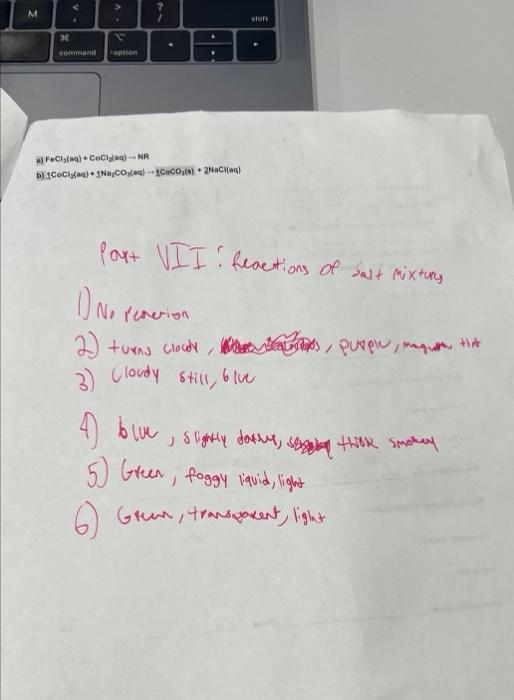 M
<
,
>
.
?
/
shift
⌘
command
⌥
option
a) FeCl₃(aq) + CoCl₂(aq) → NR
b) 1CoCl₂(aq) + 1Na₂CO₃(aq) → 1CoCO₃(s) + 2NaCl(aq)
Part VII: Reactions of Salt Mixtures
1) No
2) turns cloudy, purple, tint
3) Cloudy still, blue
4) blue, slightly darker, thick smokey
5) Green, foggy liquid, light
6) Green, transparent, light